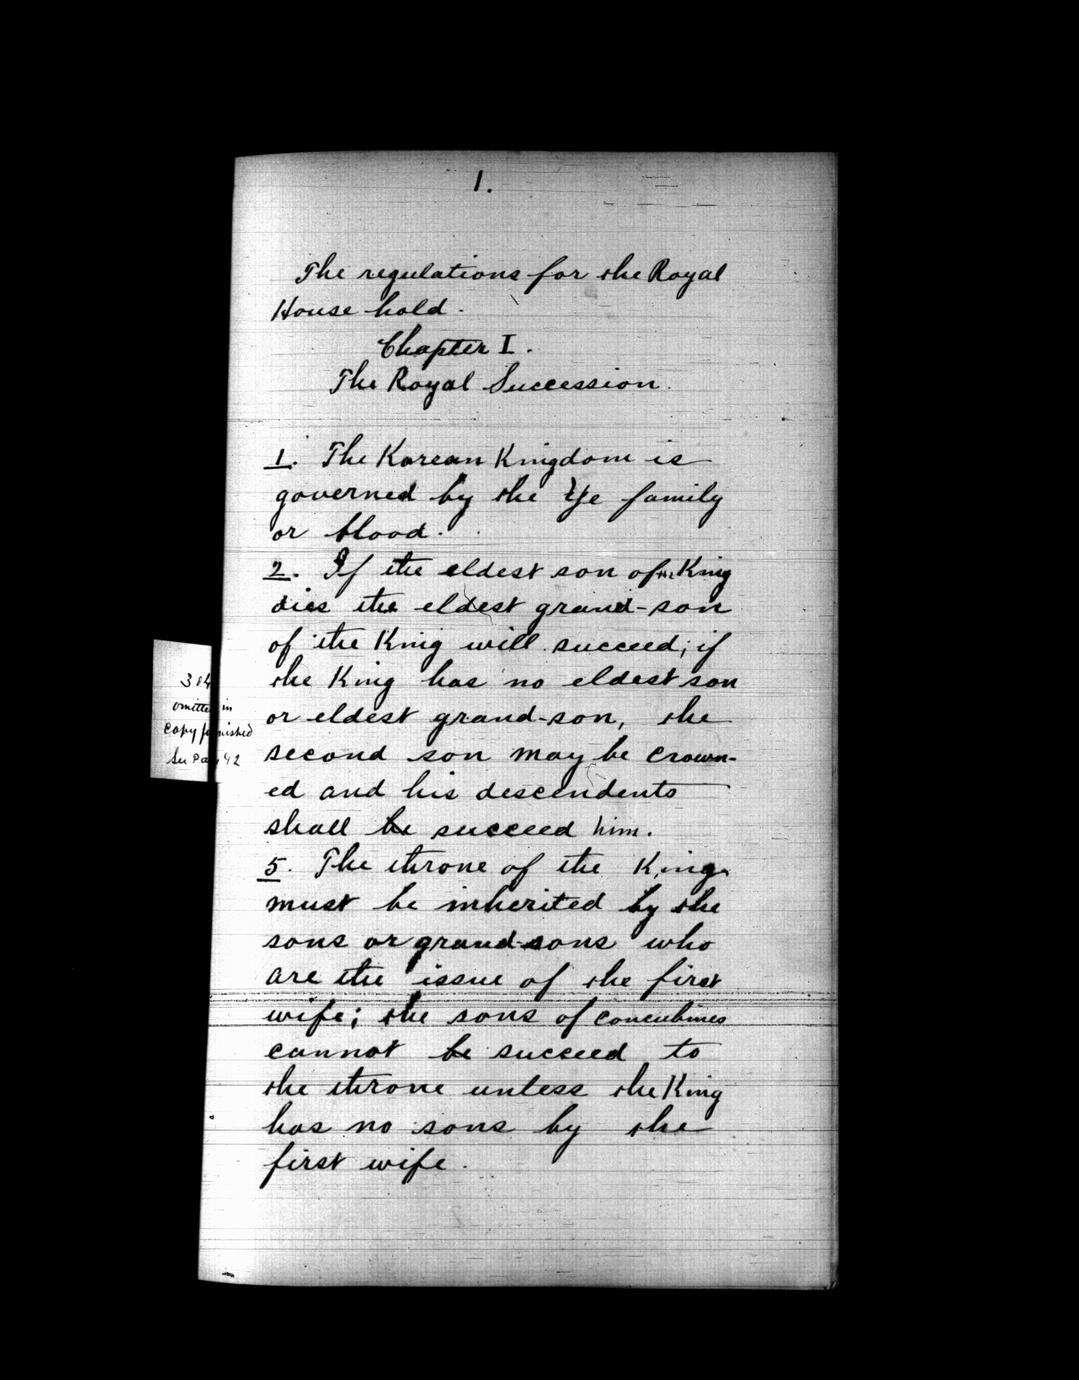 1.
The regulations for the Royal
House hold.
Chapter I.
The Royal Succession.
1. The Korean Kingdom is
governed by the Ye family
or blood.
2. If the eldest son of the King
dies the eldest grand-son
of the King will succeed; if
the King has no eldest son
or eldest grand-son, the
second son may be crown-
ed and his descendents
shall be succeed him.
5. The throne of the King
must be inherited by the
sons or grand-sons who
are the issue of the first
wife; the sons of concubines
cannot be succeed to
the throne unless the King
has no sons by the
first wife.
omitted in
copy furnished
42